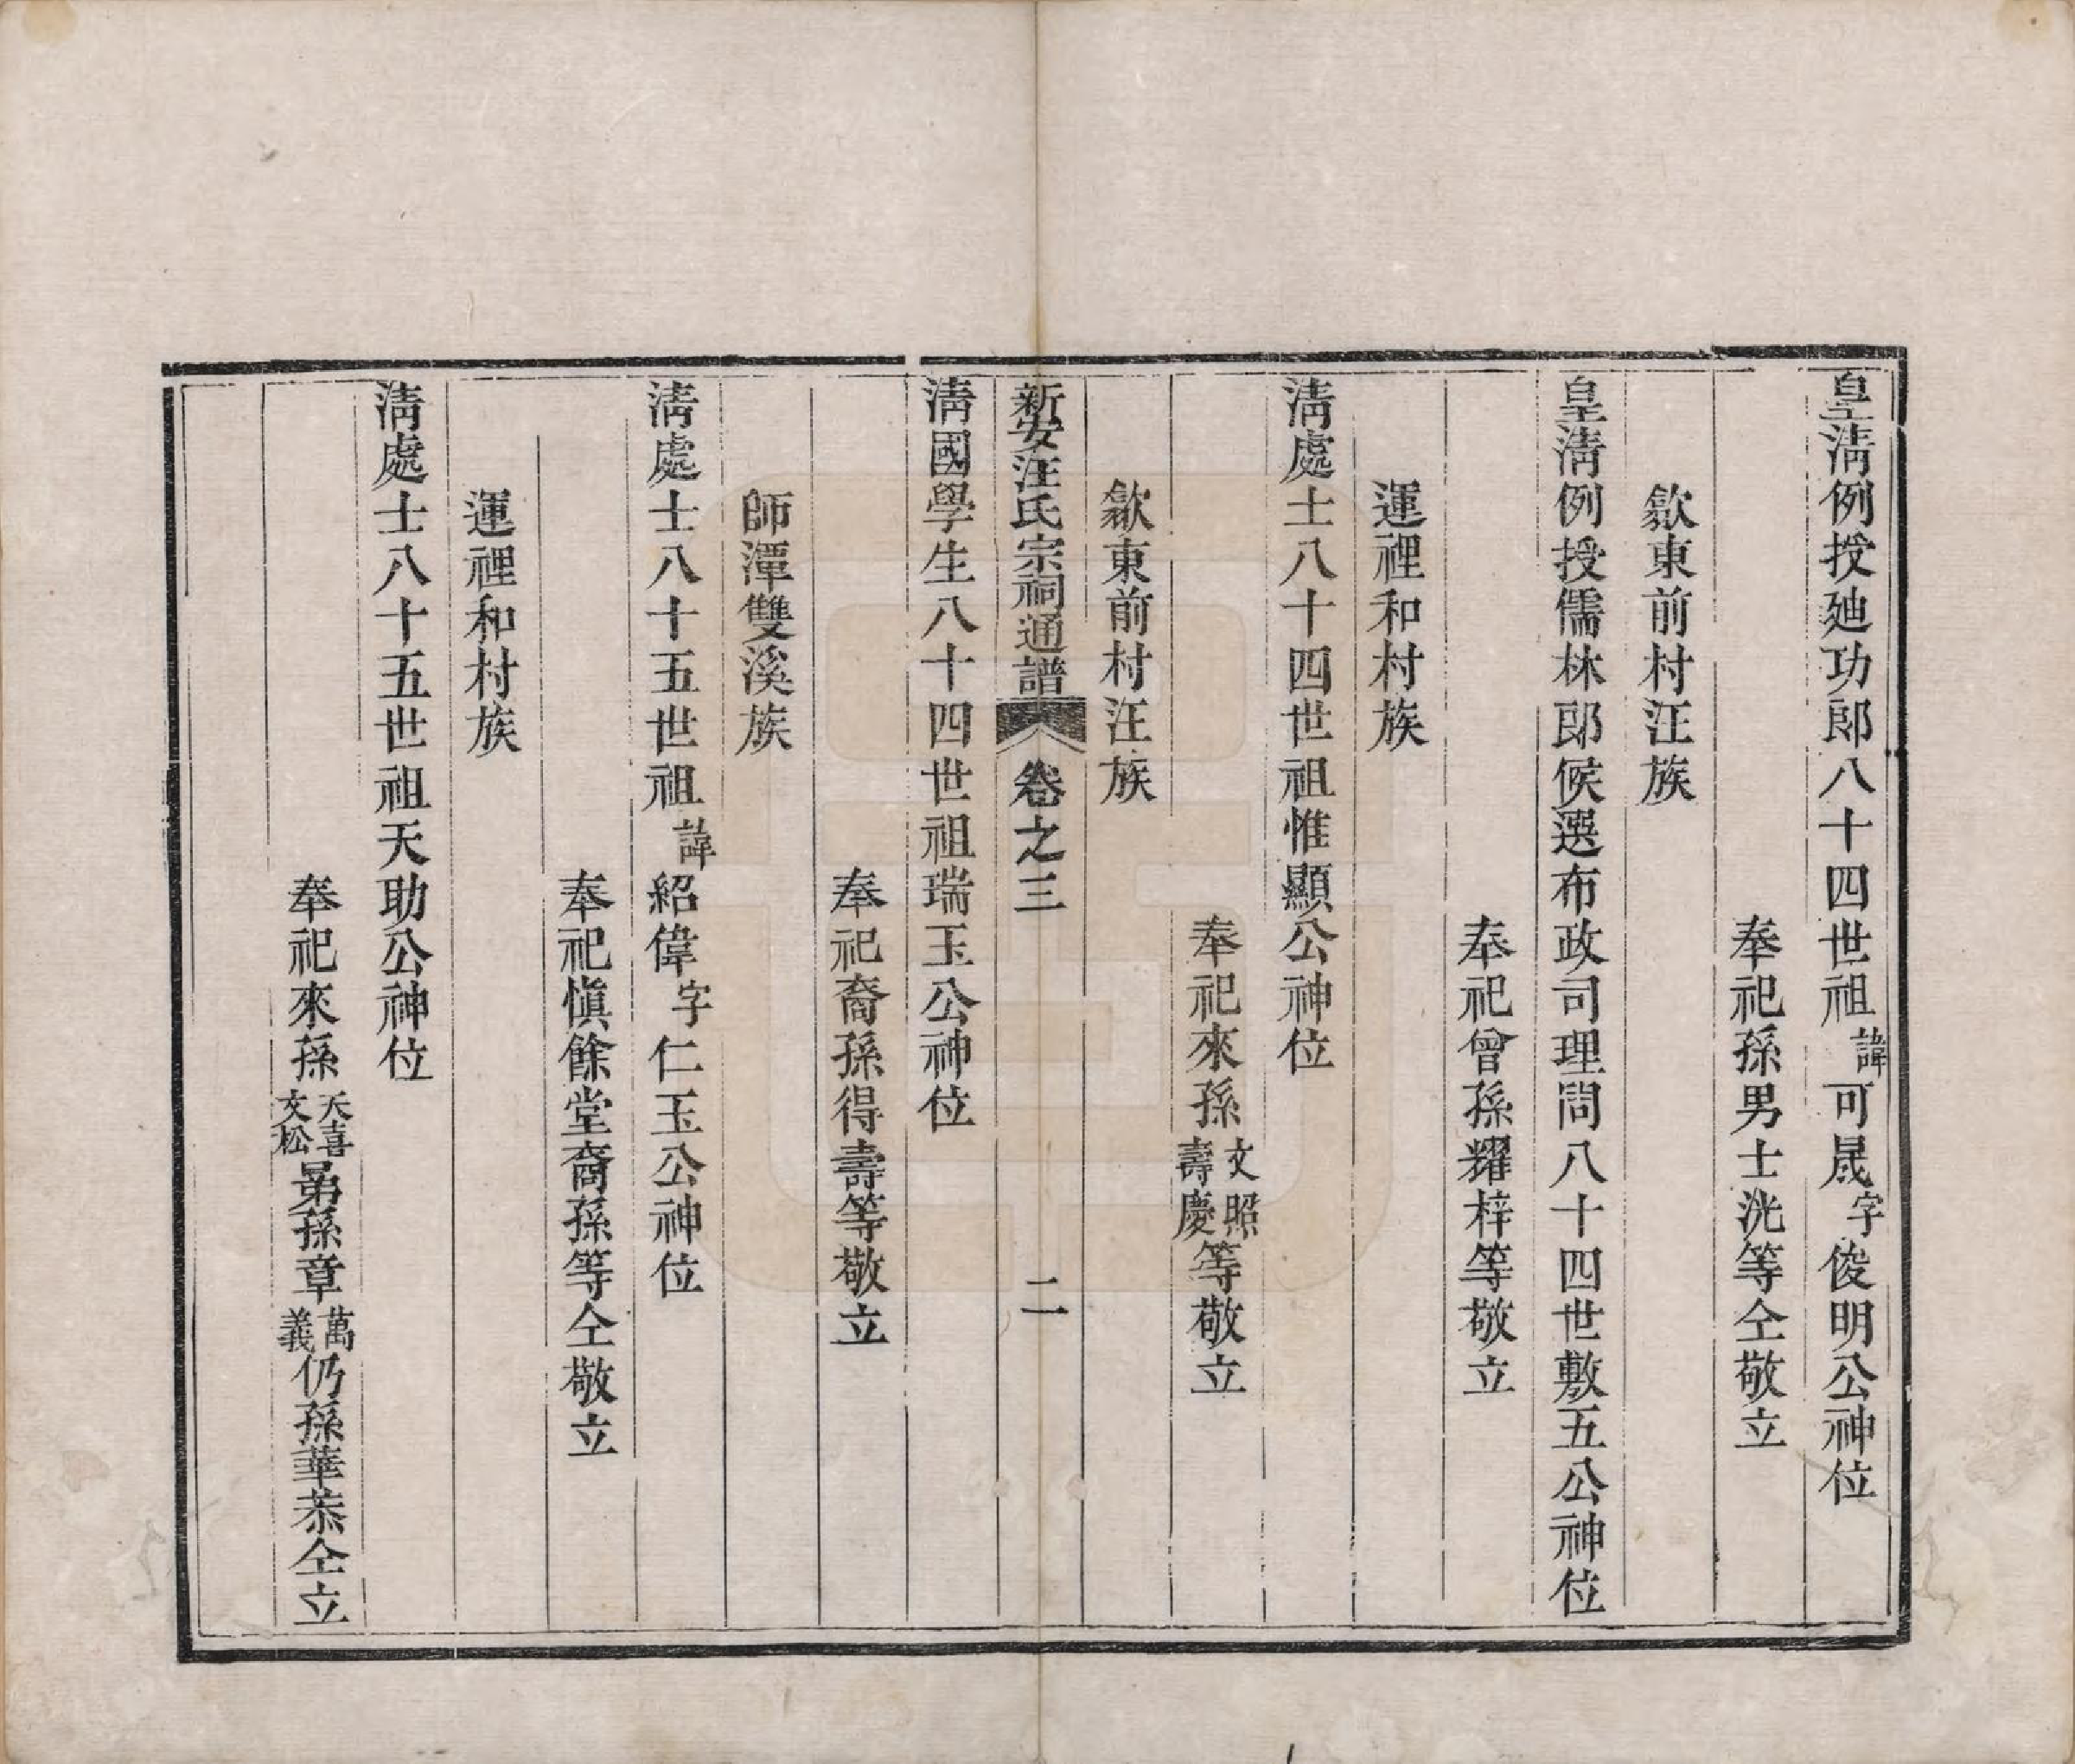 皇淸例授廸功郎八十四世祖諱可晟字俊明公神位
奉祀孫男士洸等仝敬立
歙東前村汪族
皇淸例授儒林郎候選布政司理問八十四世敷五公神位
奉祀曾孫耀梓等敬立
運裡和村族
淸處士八十四世祖惟顯公神位
奉祀來孫文照壽慶等敬立
歙東前村汪族
新安汪氏宗祠通譜 卷之三 二
淸國學生八十四世祖瑞玉公神位
奉祀裔孫得壽等敬立
師潭雙溪族
淸處士八十五世祖諱紹偉字仁玉公神位
奉祀愼餘堂裔孫等仝敬立
運裡和村族
淸處士八十五世祖天助公神位
奉祀來孫天喜文松晜孫章萬義仍孫華恭仝立